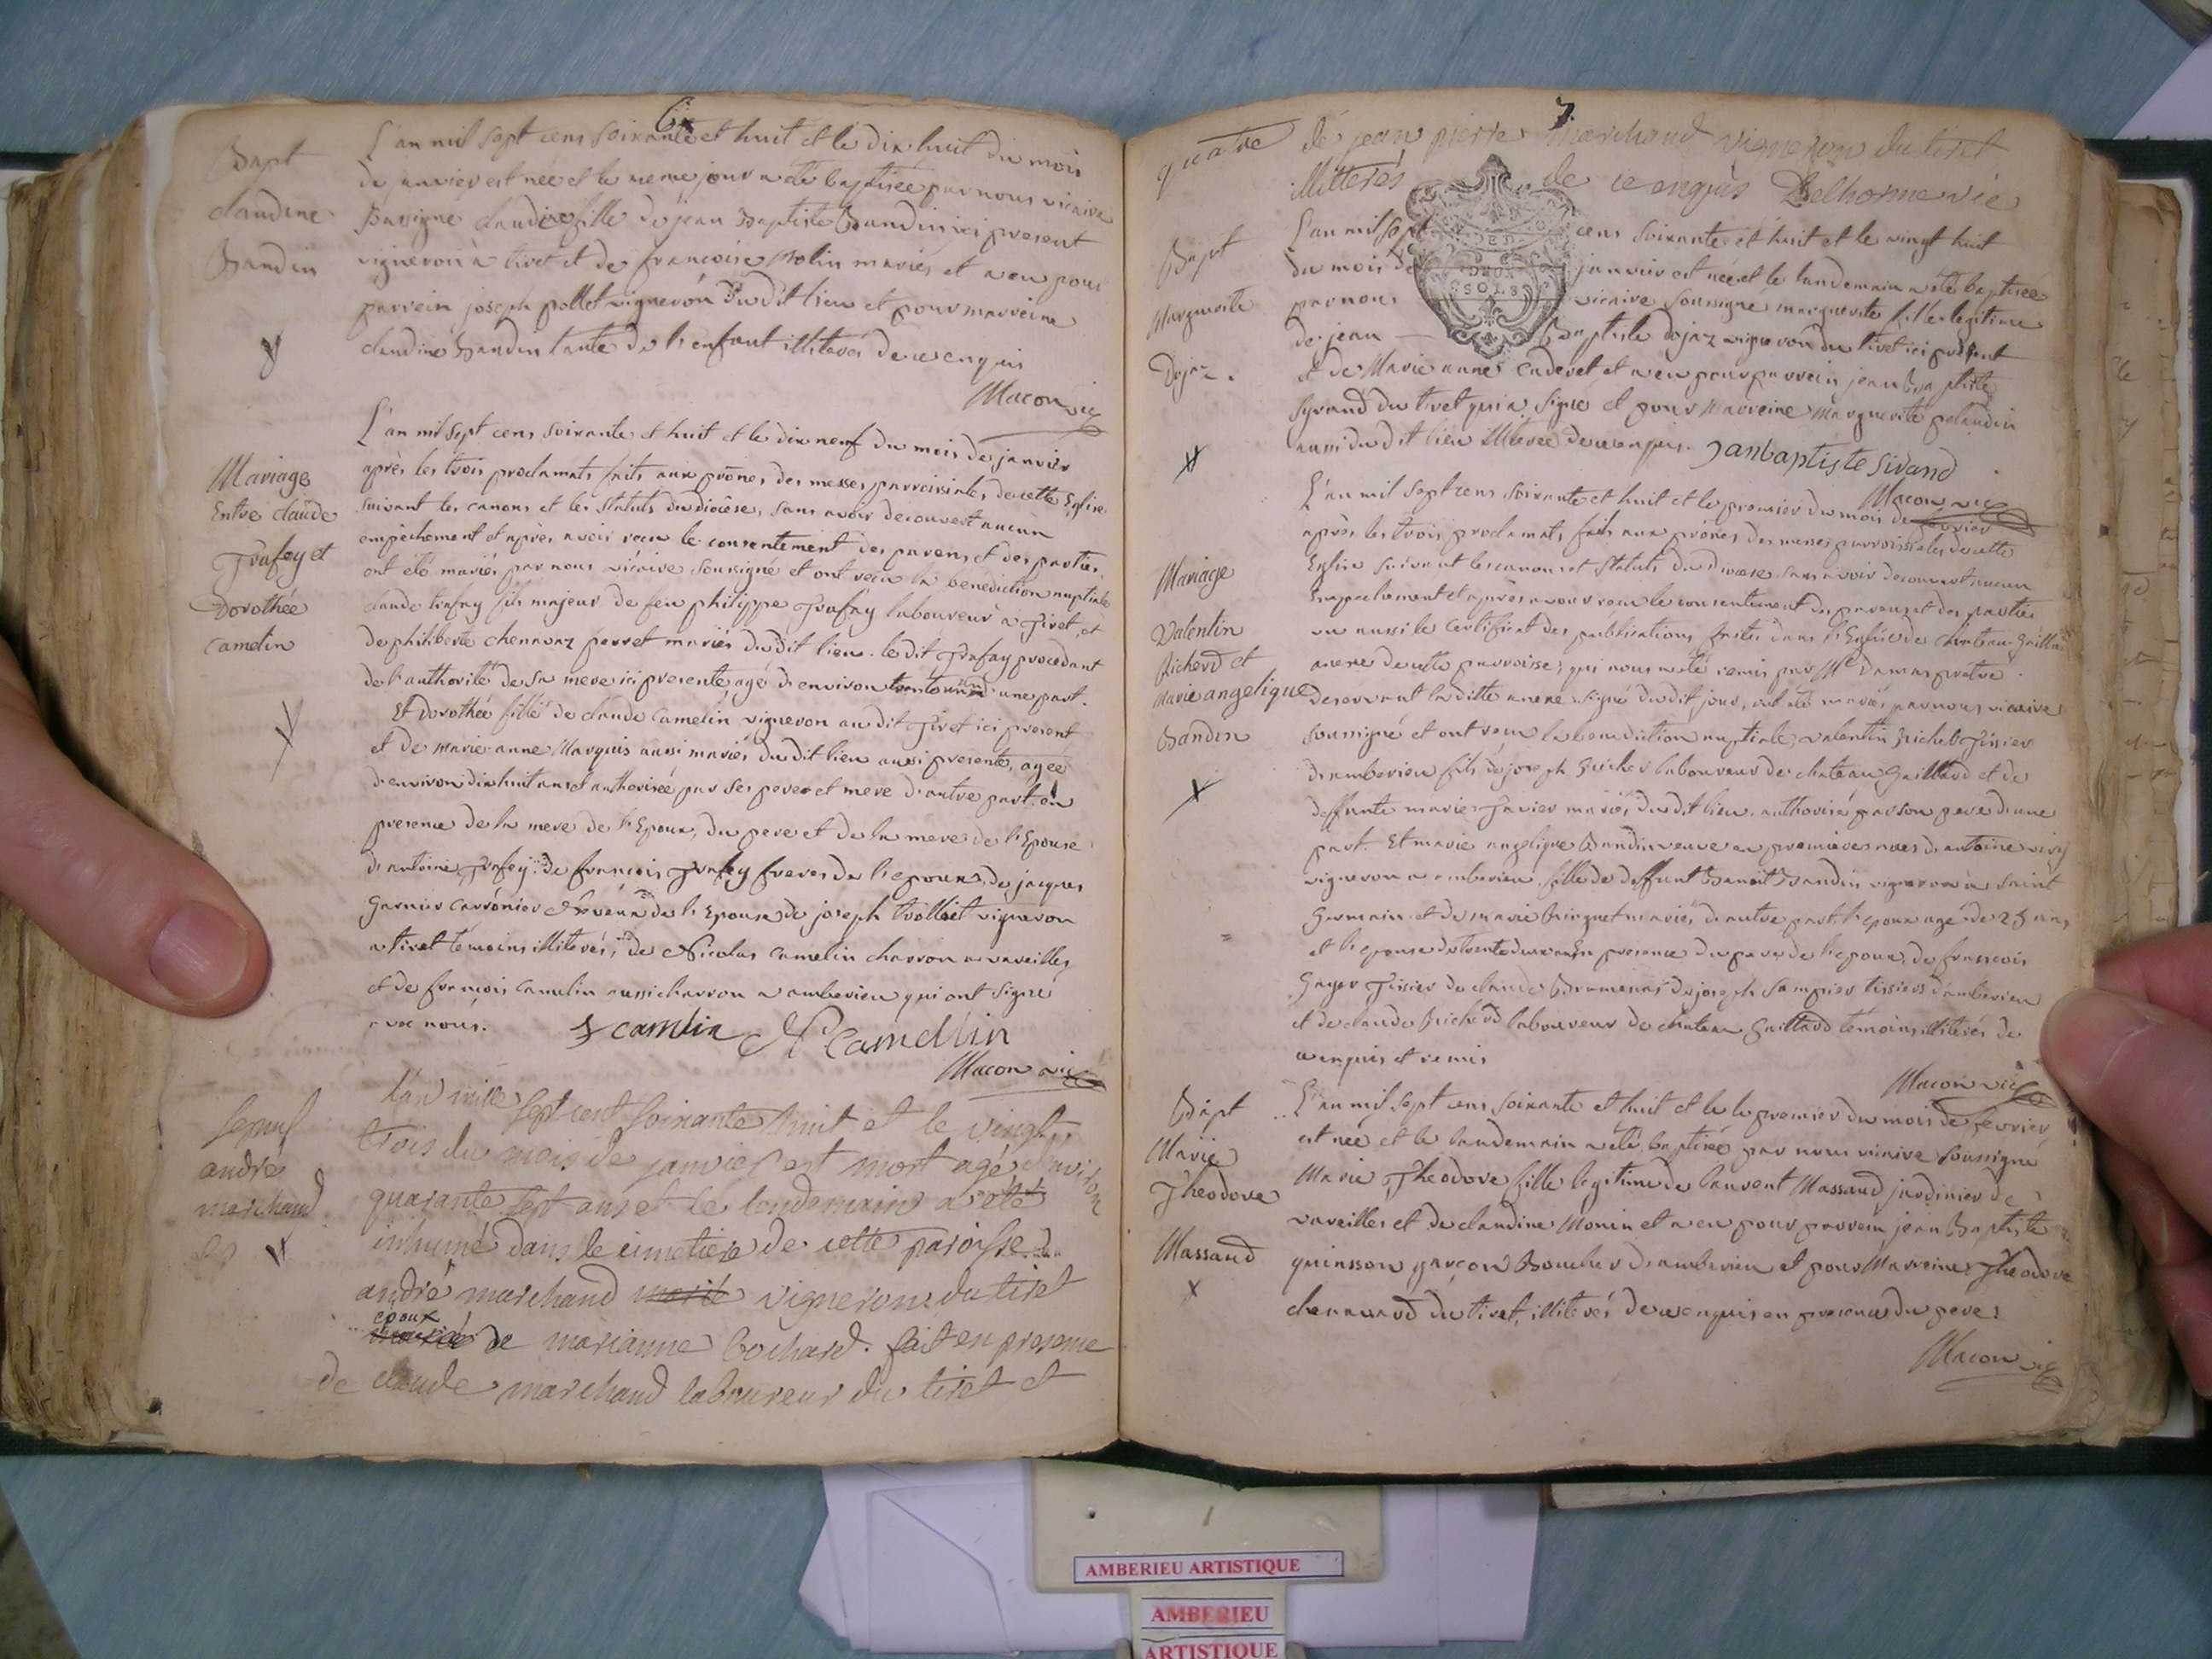 6
Bapt
claudine
Bandin
L'an mil sept cens soixante et huit et le dix huit du mois
de janvier est née et le meme jour a été baptisée par nous vicaire
soussigné claudine fille de jean Baptiste Bandin ici present
vigneron à tiret et de françoise molin mariés et a eu pour
parrein joseph pollet vigneron dudit lieu et pour marreine
claudine Bandin tante de l'enfant illiterés de ce enquis
Macon vic
Mariage
Entre claude
Trafey et
Dorothée
camelin
L'an mil sept cens soixante et huit et le dix neuf du mois de janvier
après les trois proclamats faits aux prônes des messes parroissiales de cette Eglise
suivant les canons et les statuts du diocèse, sans avoir decouvert aucun
empêchement et après avoir reçu le consentement des parens et des parties
ont été mariés par nous vicaire soussigné et ont reçu la benediction nuptiale
claude trafay fils majeur de feu philippe Trafay laboureur à Tiret, et
de philiberte chenavaz perret mariés dudit lieu. le dit Trafay procedant
de l'authorité de sa mere ici presente, agé d'environ d'une part.
Et Dorothée fille de claude Camelin vigneron audit Tiret ici present
et de marie anne Marquis aussi mariés dudit lieu aussi presente, agée
d'environ dix huit ans et authorisée par ses pere et mere d'autre part. en
presence de la mere de l'Epoux, du pere et de la mere de l'Epouse
d'antoine Trafey, de françois Trafey freres de l'epoux, de jacques
Garnier de l'Epouse, de joseph trolliet vigneron
a tiret témoins illiterés, de Nicolas camelin charron a vareilles
et de françois camelin aussi charron a amberieu qui ont signé
avec nous. f camelin N Camellin
Macon vic
Sepult
andré
marchand
l'an mille sept cent soixante huit et le vingt
trois du mois de janvier est mort agé d'environ
quarante sept ans et le lendemain a été
inhumé dans le cimetiere de cette paroisse
andré marchand vigneron du tiret
époux
de marianne bochard. fait en presence
de claude marchand laboureur du tiret et
7
quatre
de jean pierre marchand vigneron du tiret
illitterés de ce enquis Delhorme vic
Bapt
Marguerite
Dojaz.
L'an mil sept cens soixante et huit et le vingt huit
du mois de janvier est née et le lendemain a été baptisée
par nous vicaire soussigné marguerite fille legitime
de jean Baptiste dojaz vigneron du tiret ici present
et de Marie anne cadevet et a eu pour parrein jean Baptiste
syrand du tiret qui a signé et pour marreine marguerite pelaudin
aussi dudit lieu illiterée de ce enquis. janbaptiste sirand
Macon vic
Mariage
Valentin
Richerd et
marie angelique
Bandin
L'an mil sept cens soixante et huit et le premier du mois de fevrier
après les trois proclamats faits aux prônes des messes parroissiales de cette
Eglise suivant les canons et statuts du diocese sans avoir decouvert aucun
Empechement et après avoir reçu le consentement des parens et des parties
vu aussi le certificat des publications faites dans l'Eglise de chateau Gaillard
anexe de cette parroisse, qui nous a été remis par Mr Damas prêtre
deservant laditte anexe signé dudit jour, ont été mariés par nous vicaire
soussigné et ont reçu la benediction nuptiale, valentin Richerd Tisier
d'amberieu fils de joseph Richer laboureur de chateau Gaillard et de
deffunte marie Tavier mariés dudit lieu authorisé par son pere d'une
part. Et marie angelique Bandin veuve en premieres noces d'antoine
vigneron a amberieu fille de deffunt Benoit Bandin vigneron à saint
Germain et de marie mariés d'autre part. l'epoux agé de 25 ans
et l'epouse de trente deux ans En presence du pere de l'epoux, de françois
Gayer Tisier de claude de joseph tissier d'amberieu
et de claude Richerd laboureur de chateau Gaillard témoins illiterés de
ce enquis et remis
Macon vic
Bapt
Marie
Theodore
Massand
L'an mil sept cens soixante et huit et le premier du mois de fevrier
est née et le landemain a été baptisée par nous vicaire soussigné
Marie Theodore fille legitime de laurent Massand jardinier de
vareilles et de claudine Monin et a eu pour parrein jean Baptiste
quinsson garçon Boucher d'amberieu et pour Marreine Theodore
chenavard du tiret, illiterés de ce enquis en presence du pere
Macon vic
AMBERIEU ARTISTIQUE
AMBERIEU
ARTISTIQUE